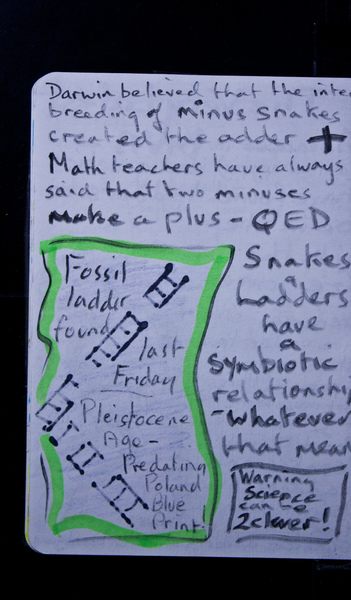 Darwin believed that the inter
breeding of minus snakes
created the adder +
Math teachers have always
said that two minuses
make a plus - QED
Fossil
ladder
found
last
Friday
Pleistocene
Age -
Predating
Poland
Blue
Print!
Snakes
&
Ladders
have
a
symbiotic
relationship
- whatever
that mean
Warning
Science
can be
2 clever!